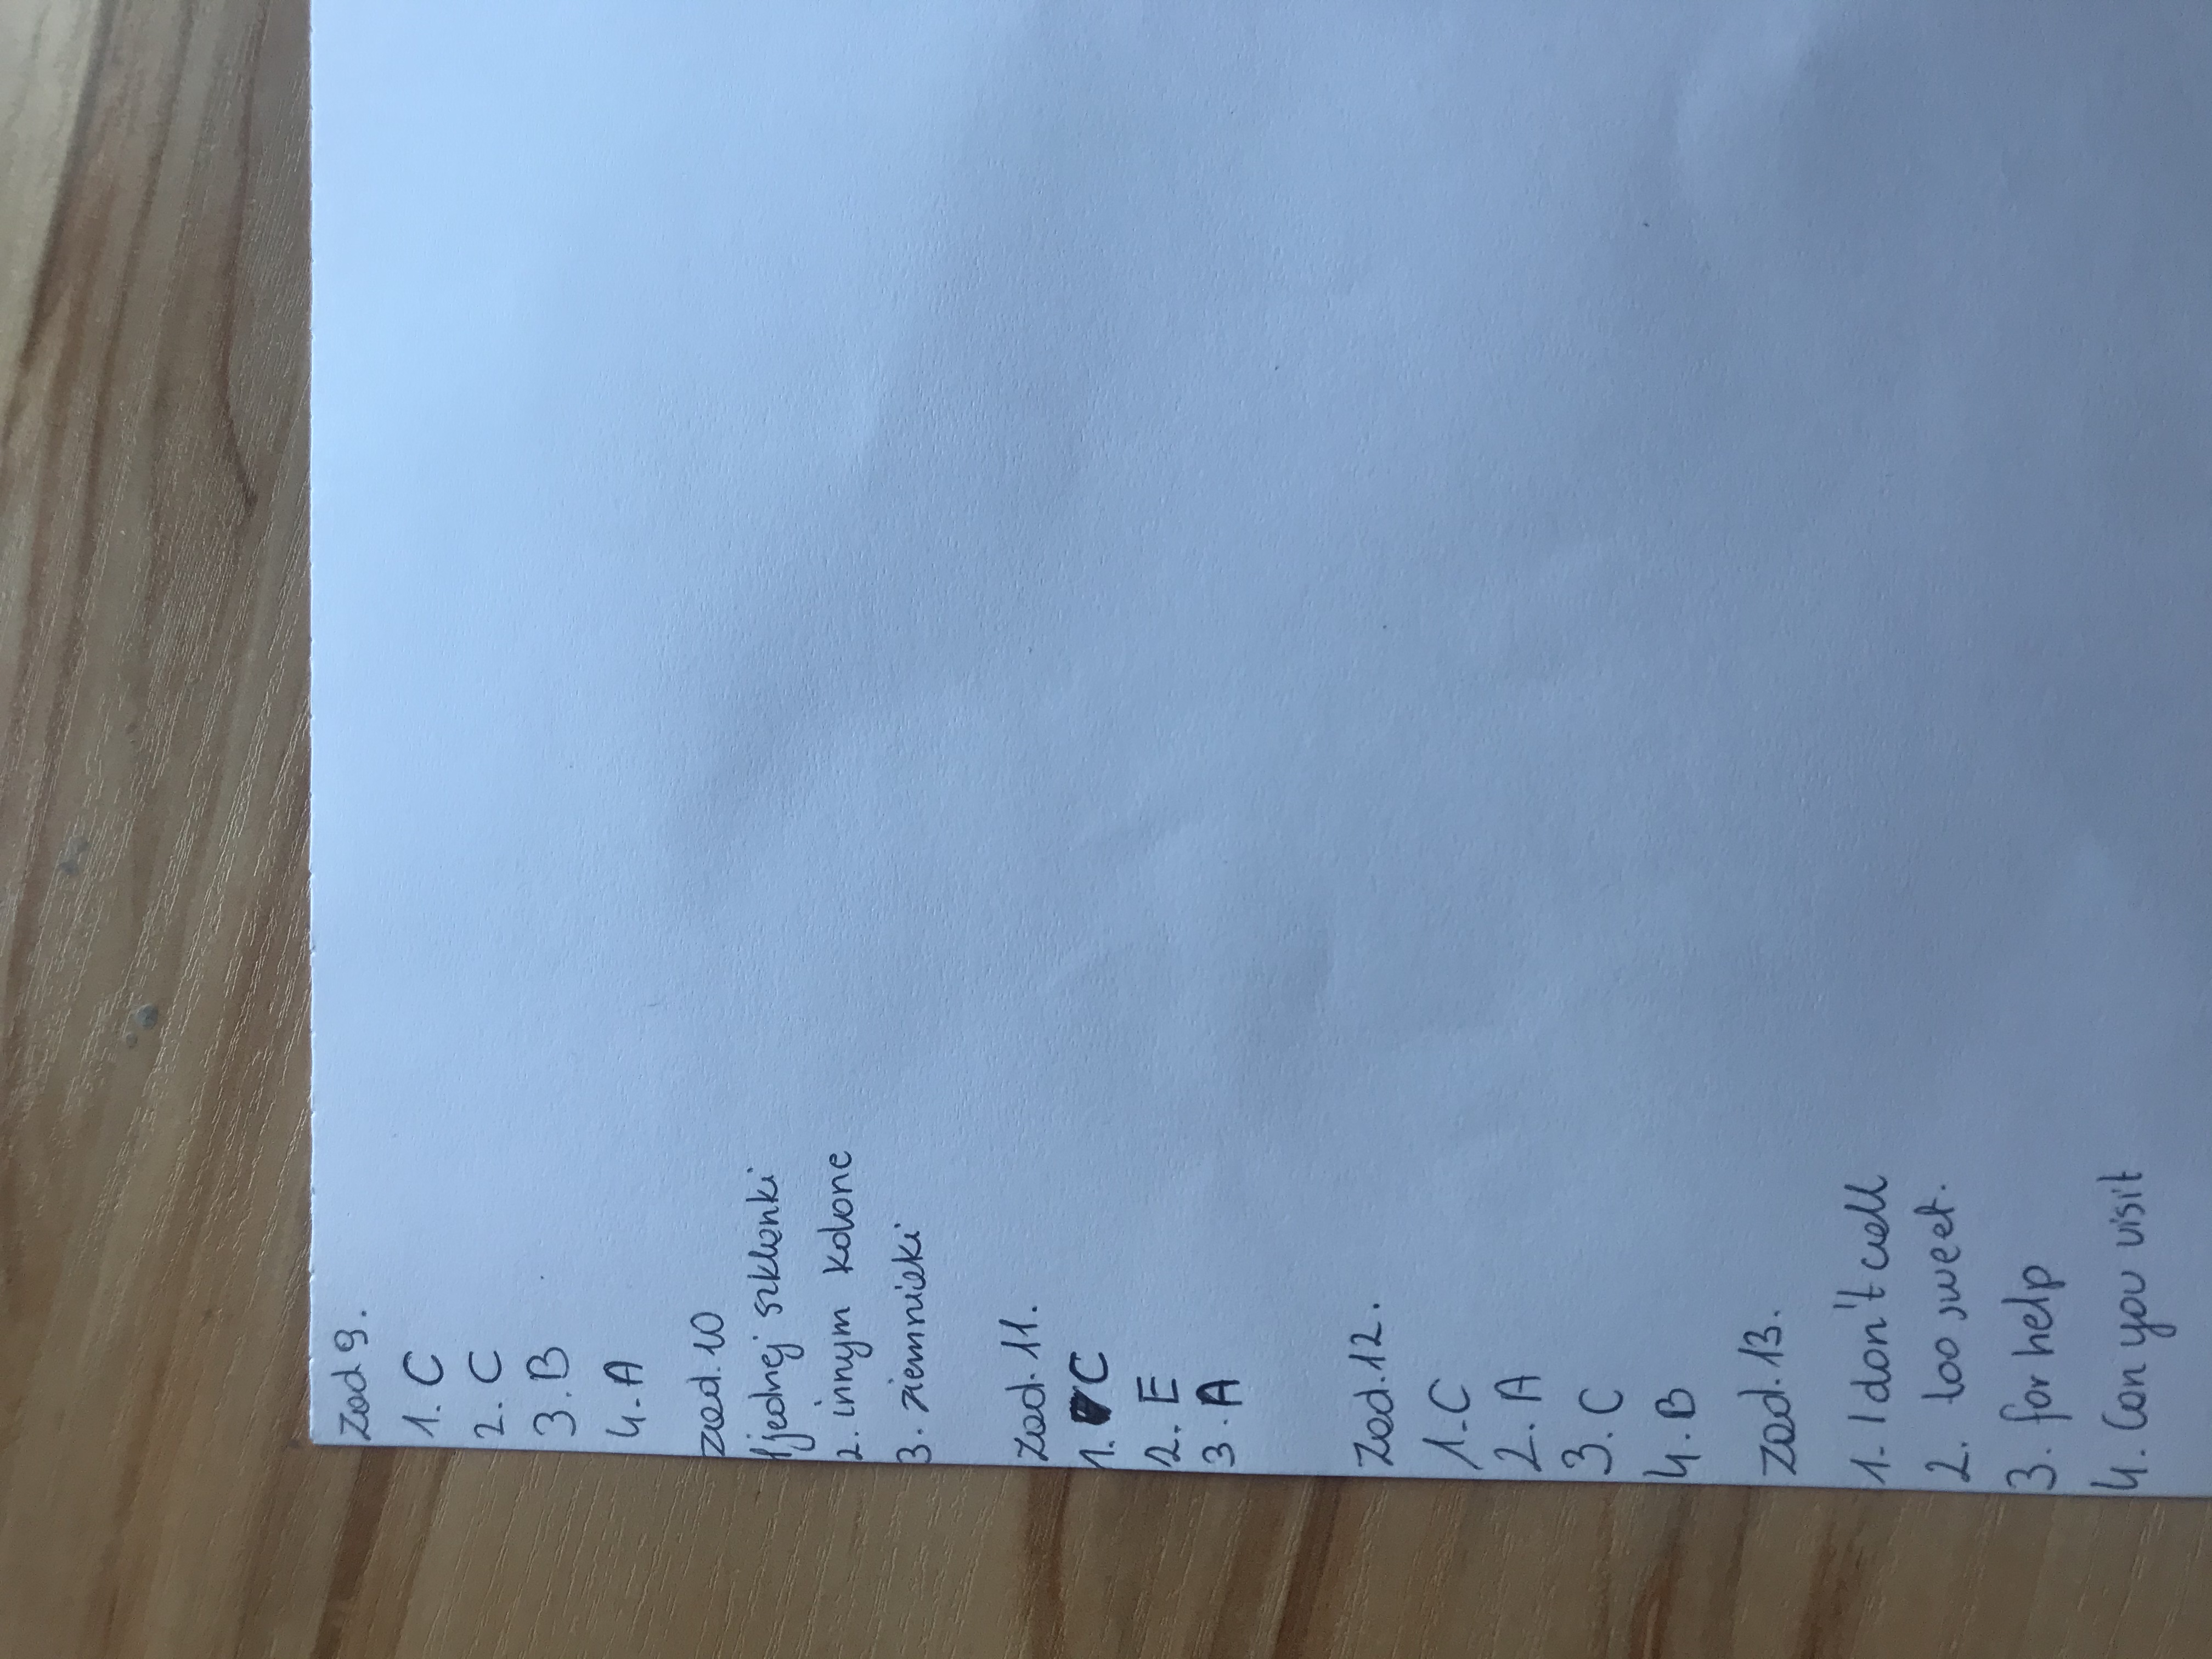 Zad 9.
1. C
2. C
3. B
4. A
Zad. 10
1 jednej szklanki
2. innym kolorze
3. ziemniaki
Zad. 11.
1. C
2. E
3. A
Zad. 12.
1. C
2. A
3. C
4. B
Zad. 13.
1. I don't call
2. too sweet.
3. for help
4. Can you visit